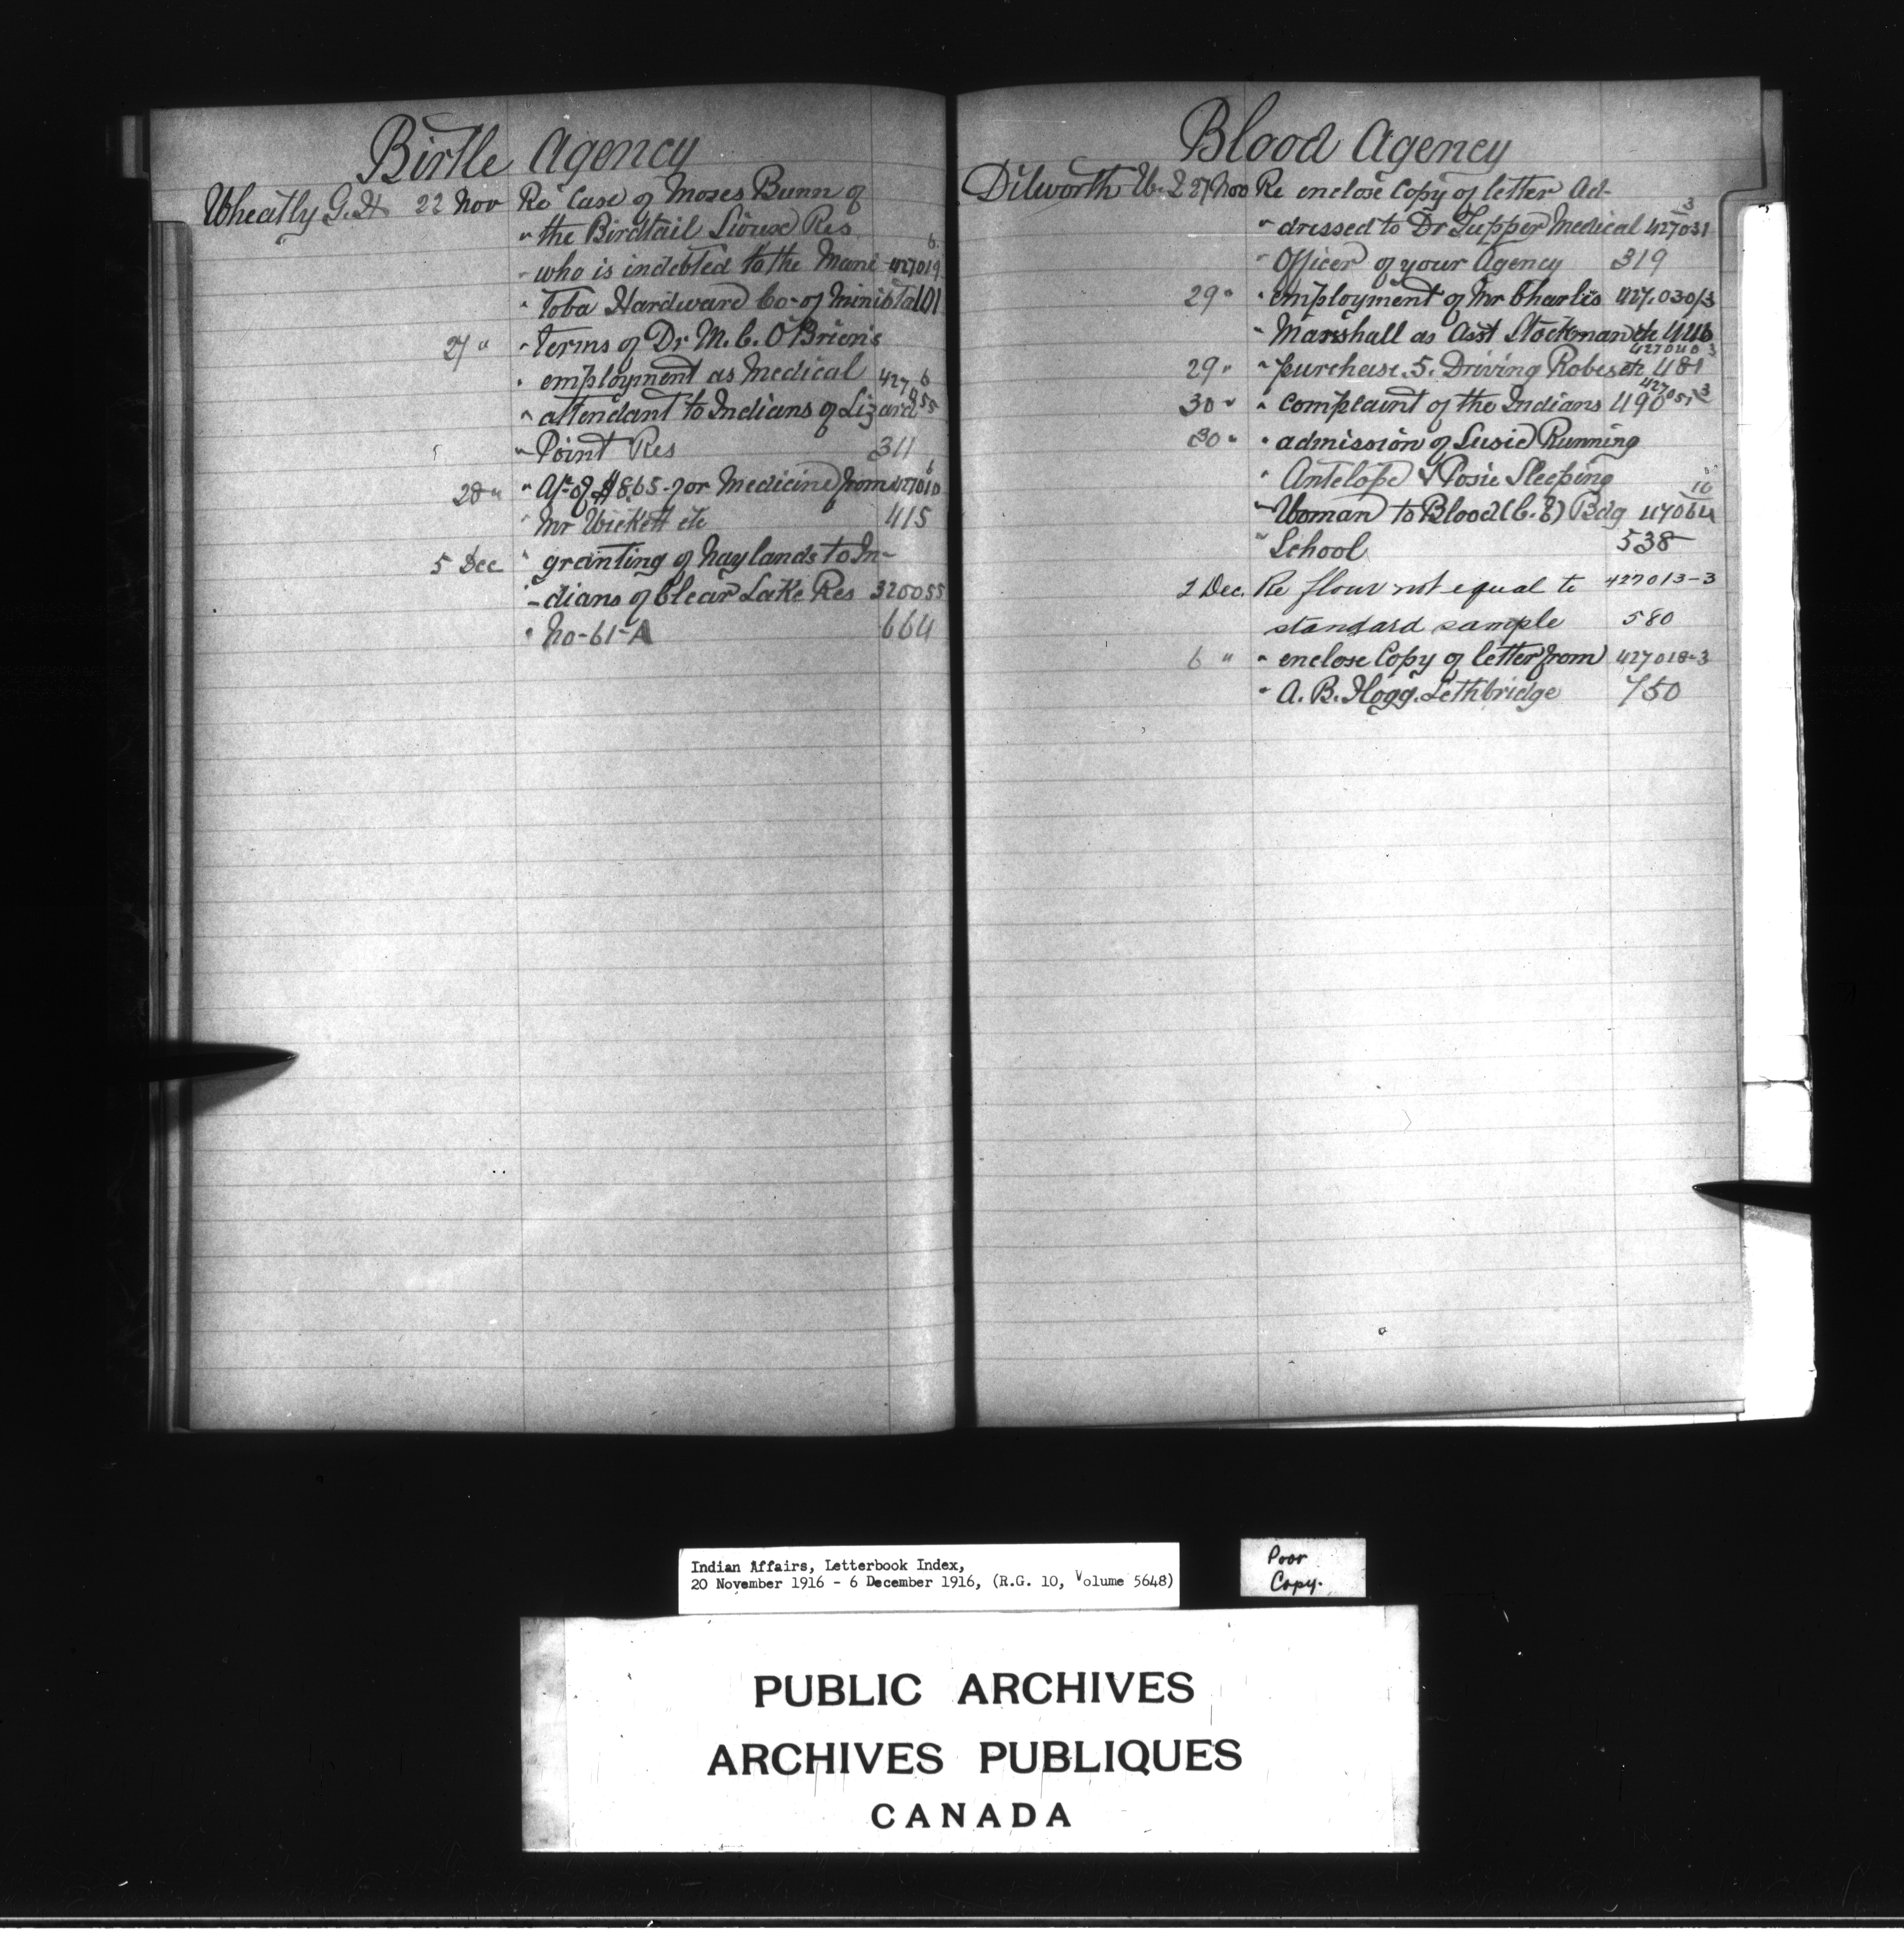 Birtle Agency
Wheatly G. H. 22 Nov Re Case of Moses Bunn of
" the Birdtail Sioux Res
- who is indebted to the Mani- 427019 6
" toba Hardware Co- of Miniota 101
27 " " terms of Dr M. C. O'Brien's
" employment as Medical 427055 6
" attendant to Indians of Lizard
" Point Res 311
28 " " A/c of $8.65 - for Medicine from 427010 6
" Mr Wickett etc 415
5 Dec " granting of haylands to In-
- dians of Clear Lake Res 320055
" No-61-A 664
Blood Agency
Dilworth W. J. 27 Nov Re enclose Copy of letter Ad- 3
" dressed to Dr Tupper Medical 427031
" Officer of your Agency 319
29 " " employment of Mr Charles 427030/3
" Marshall as Asst Stockman etc 446
427040 3
29 " " purchase. 5. Driving Robes etc 481
427051 3
30 " " Complaint of the Indians 490
30 " " admission of Susie Running
" Antelope & Rosie Sleeping 10
" Woman to Blood (C. E) Bdg 47064
" School 538
2 Dec. Re flour not equal to 427013-3
standard sample 580
6 " " enclose Copy of letter from 427018-3
" A. B. Hogg. Lethbridge 750
Indian Affairs, Letterbook Index,
20 November 1916 - 6 December 1916, (R.G. 10, Volume 5648)
Poor
Copy.
PUBLIC ARCHIVES
ARCHIVES PUBLIQUES
CANADA